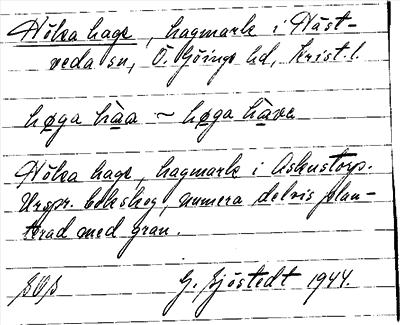 Höka hage, hagmark i Häst-
veda sn, Ö. Göinge hd, Krist. l.
høga hàa ~ høga hàve
Höka hage, hagmark i Askustorp.
Urspr. bokskog, numera delvis plan-
terad med gran.
G. Sjöstedt 1944.